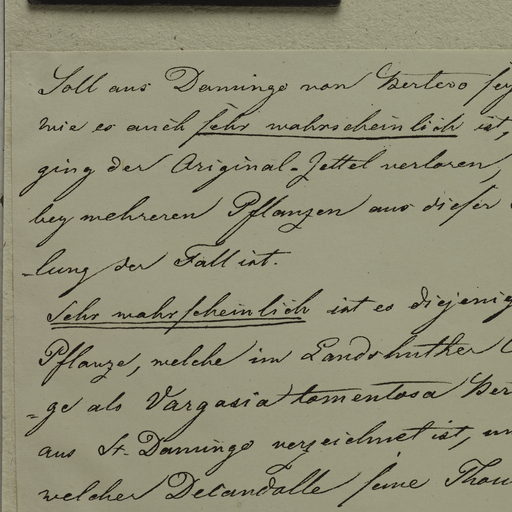 Soll aus Domingo von Bertero
wie es auch sehr wahrscheinlich ist,
ging der Original-Zettel verloren,
bey mehreren Pflanzen aus dieser
-lung der Fall ist.
Sehr wahrscheinlich ist es diejenig
Pflanze, welche im Landshuther
=ge als Vargasia tomentosa Ber
aus St. Domingo verzeichnet ist, un
welcher Decandolle seine Thou